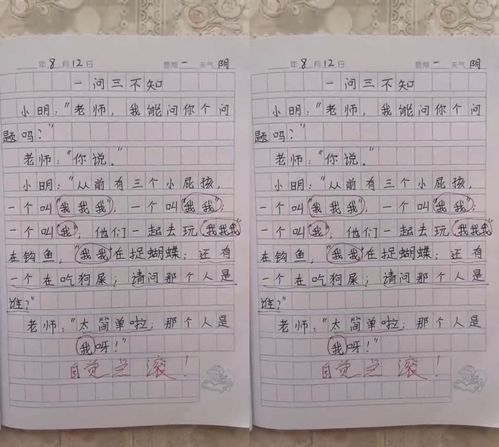 年 8 月 12 日 星期 一 天气 阴
一问三不知
小明："老师，我能问你个问
题吗？"
老师："你说。"
小明："从前有三个小屁孩，
一个叫"我我我"，一个叫"我我"，
一个叫"我"，他们一起去玩，"我我我"
在钓鱼，"我我"在捉蝴蝶；还有
一个在吃狗屎；请问那个人是
谁？"
老师："太简单啦；那个人是
我呀！"
自觉点滚！
年 8 月 12 日 星期 一 天气 阴
一问三不知
小明："老师，我能问你个问
题吗？"
老师："你说。"
小明："从前有三个小屁孩，
一个叫"我我我"，一个叫"我我"，
一个叫"我"，他们一起去玩，"我我我"
在钓鱼，"我我"在捉蝴蝶；还有
一个在吃狗屎；请问那个人是
谁？"
老师："太简单啦；那个人是
我呀！"
自觉点滚！